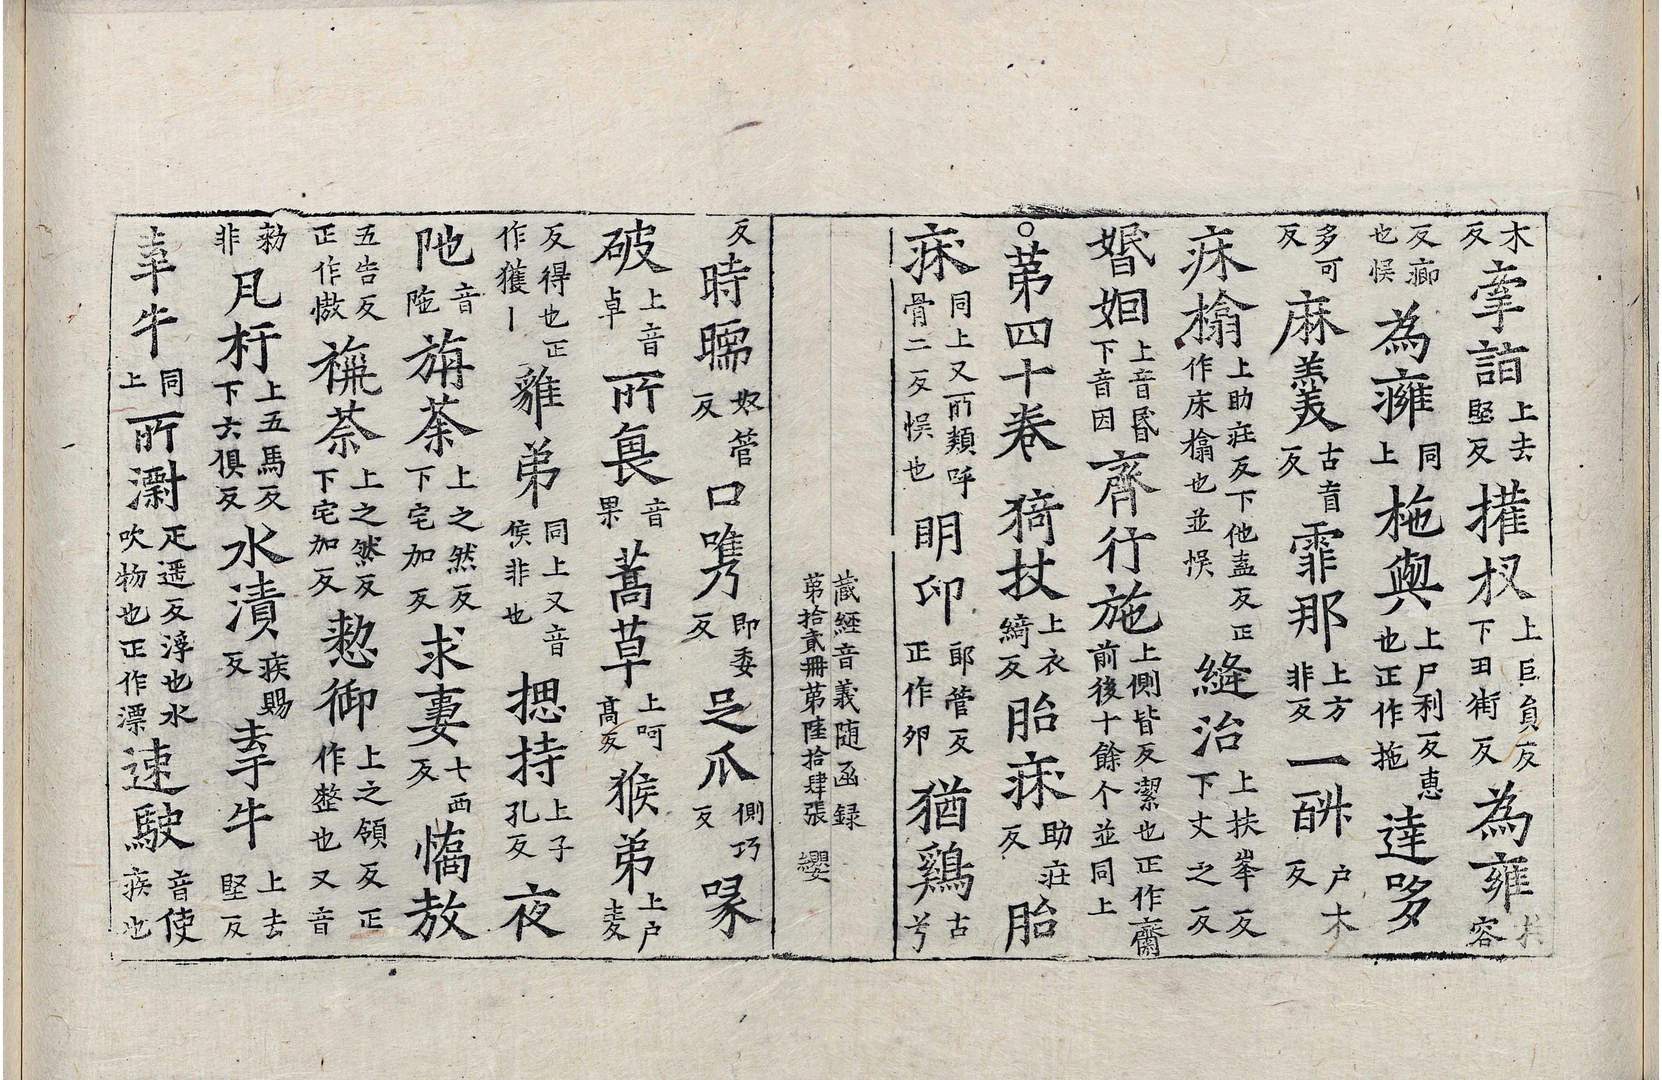 木反牽詣上去堅反權杈上巨員反下田街反為雍於容
反癤也悮為癰同上柂與上尸利反惠也正作拖達哆
多可反麻羛古盲反霏那上方非反一酙户木反
床㯓上助莊反下他盍反正作床㯓也並悮縫治上扶峯反下丈之反
婚姻上音昏下音因齊行施上側皆反潔也正作齋前後十餘个並同上
○苐四十卷猗杖上衣綺反胎𤵺助莊反胎
𤵺同上又所類呼骨二反悮也明卬郎管反正作卵猶鷄古兮
藏經音義隨函録苐拾貳冊苐陸拾肆張 纓
反時臑奴管反口嶲即委反足爪側巧反喙
破上音卓所㲋音果蒿草上呵髙反猴弟上户婁
反得也正作獲雞弟同上又音侯非也揌持上子孔反夜
阤音陁旃荼上之然反下宅加反求妻七西反慠敖
五告反正作慠旃荼上之然反下宅加反憗御上之領反正作整也又音
勑非凡杅上五馬反下去俱反水漬疾賜反牽牛上去堅反
牽牛同上所澍疋遥反淳也水吹物也正作漂速駛音使疾也